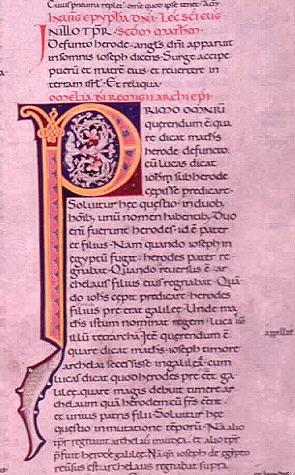 Cuius pneuma replet omne quod ipse tenet. Am
IN UIG EPYPHA DNI. LEC SCI EUG
IN ILLO TPR. SCDM MATHM.
Defuncto herode. angls dni apparuit
in somnis ioseph dicens. Surge accipe
puerum et matrem eius. et reuertere in
terram isrl. Et reliqua.
OMELIA DNI REMIGII ARCHI EPI.
PRIMO OMNIUM
querendum ē qua
re dicat maths
herode defuncto.
cū lucas dicat
iohm sub herode
cepisse predicare.
Soluitur hec questio in duob;
hōib; unū nomen habentib; Duo
eni fuerunt herodes. id ē pater
et filius. Nam quando ioseph in
egyptū fugit. herodes pater re
gnabat. Quando reuersus ē. ar
chelaus filius eius regnabat. Quā
do iohs cepit predicare. herodes
filius pre erat galileę. Unde ma
ths istum nominat regem. Lucas u
illū tetrarchā. Itē querendum ē
quare dicat maths. ioseph timore
archelai secessisse in galileā. cum
lucas dicat quod herodes pre ēet ga
lileę. quare magis debuit timere ar
chelaum quā herodem cū frs ēent
et unius patris filii. Soluitur hec
questio in mutatione tēporū. Nā alio
tpr regnauit archelaus in iudea. et alio tpr
pfuit herodes galileę. Nā qn ioseph de egypto
reuersus est archelaus regnabat supra
appellat